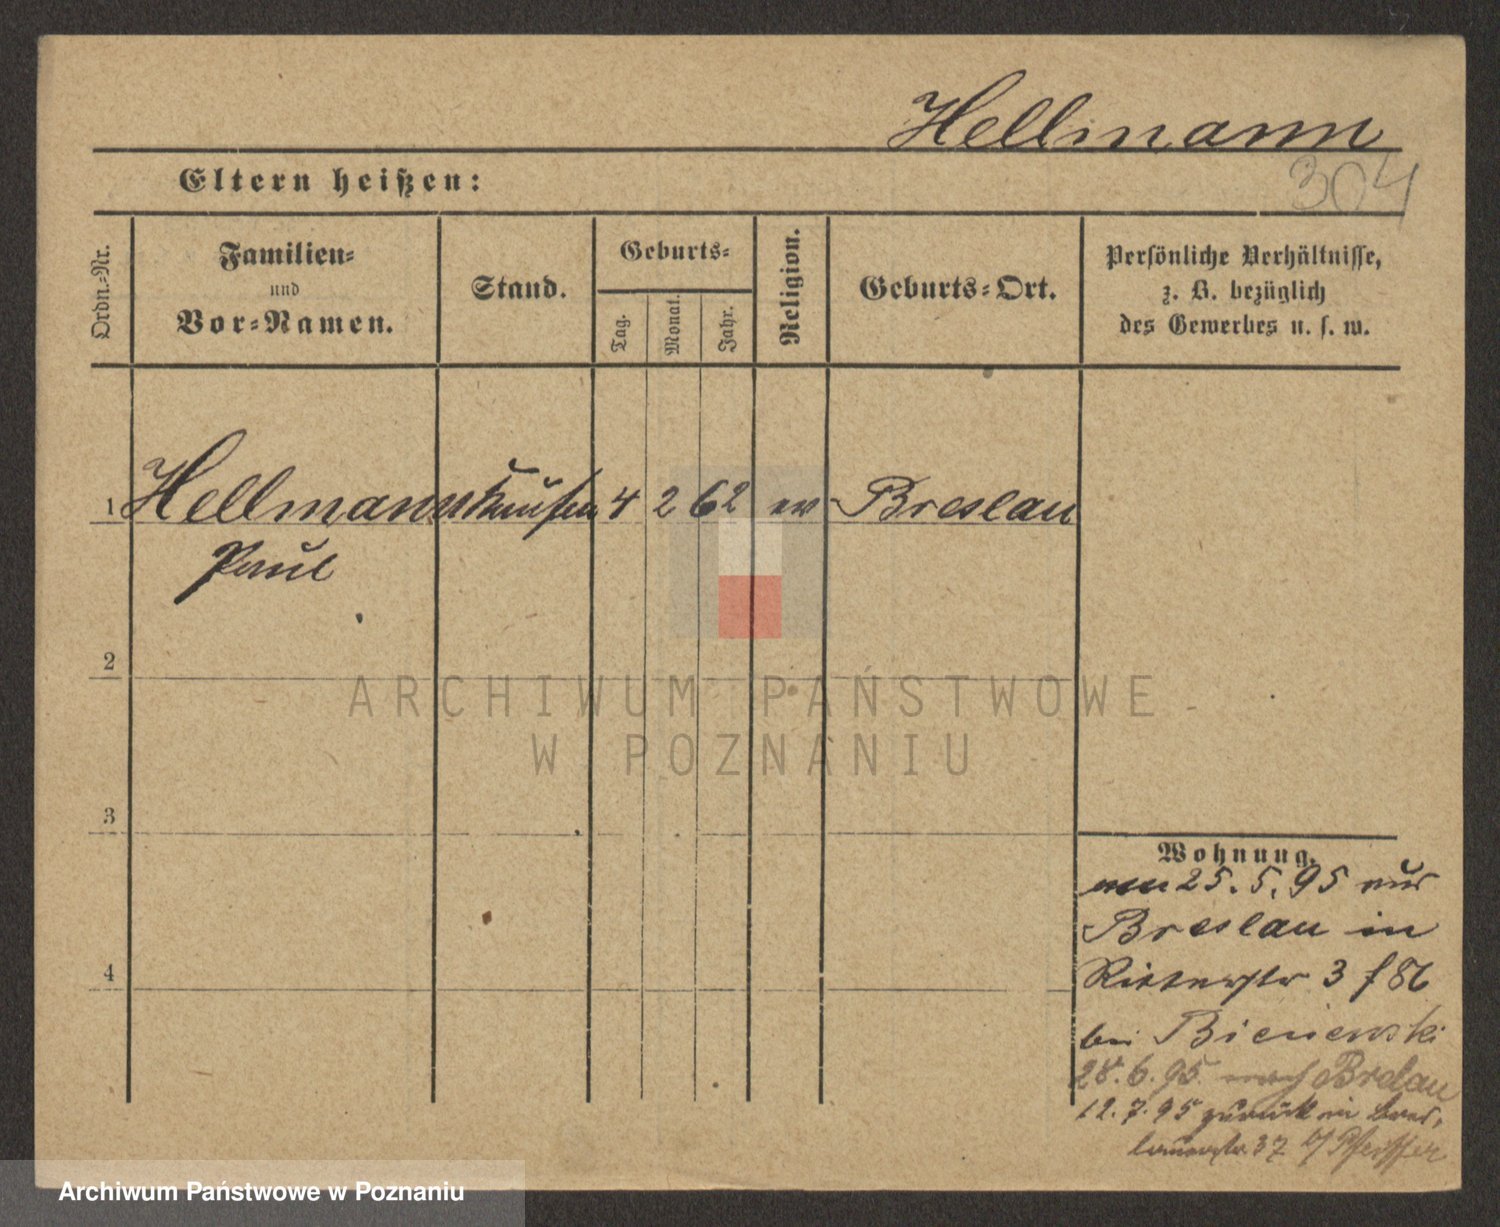 Hellmann
304
Eltern heißen:
Ordn.-Nr.
Familien-
und
Vor-Namen.
Stand.
Geburts-
Tag.
Monat.
Jahr.
Religion.
Geburts-Ort.
Persönliche Verhältnisse,
z. B. bezüglich
des Gewerbes u. s. w.
1 Hellmann 4 2 62 ev Breslau
Paul
2
3
4
ARCHIWUM PAŃSTWOWE
W POZNANIU
Wohnung.
25. 5. 95 aus
Breslau in
Ritterstr 3
bei Bieniewski
28. 6. 95. nach Breslau
12. 7. 95 zurück in Bres-
lauerstr 37 b/ Pfeiffer
Archiwum Państwowe w Poznaniu